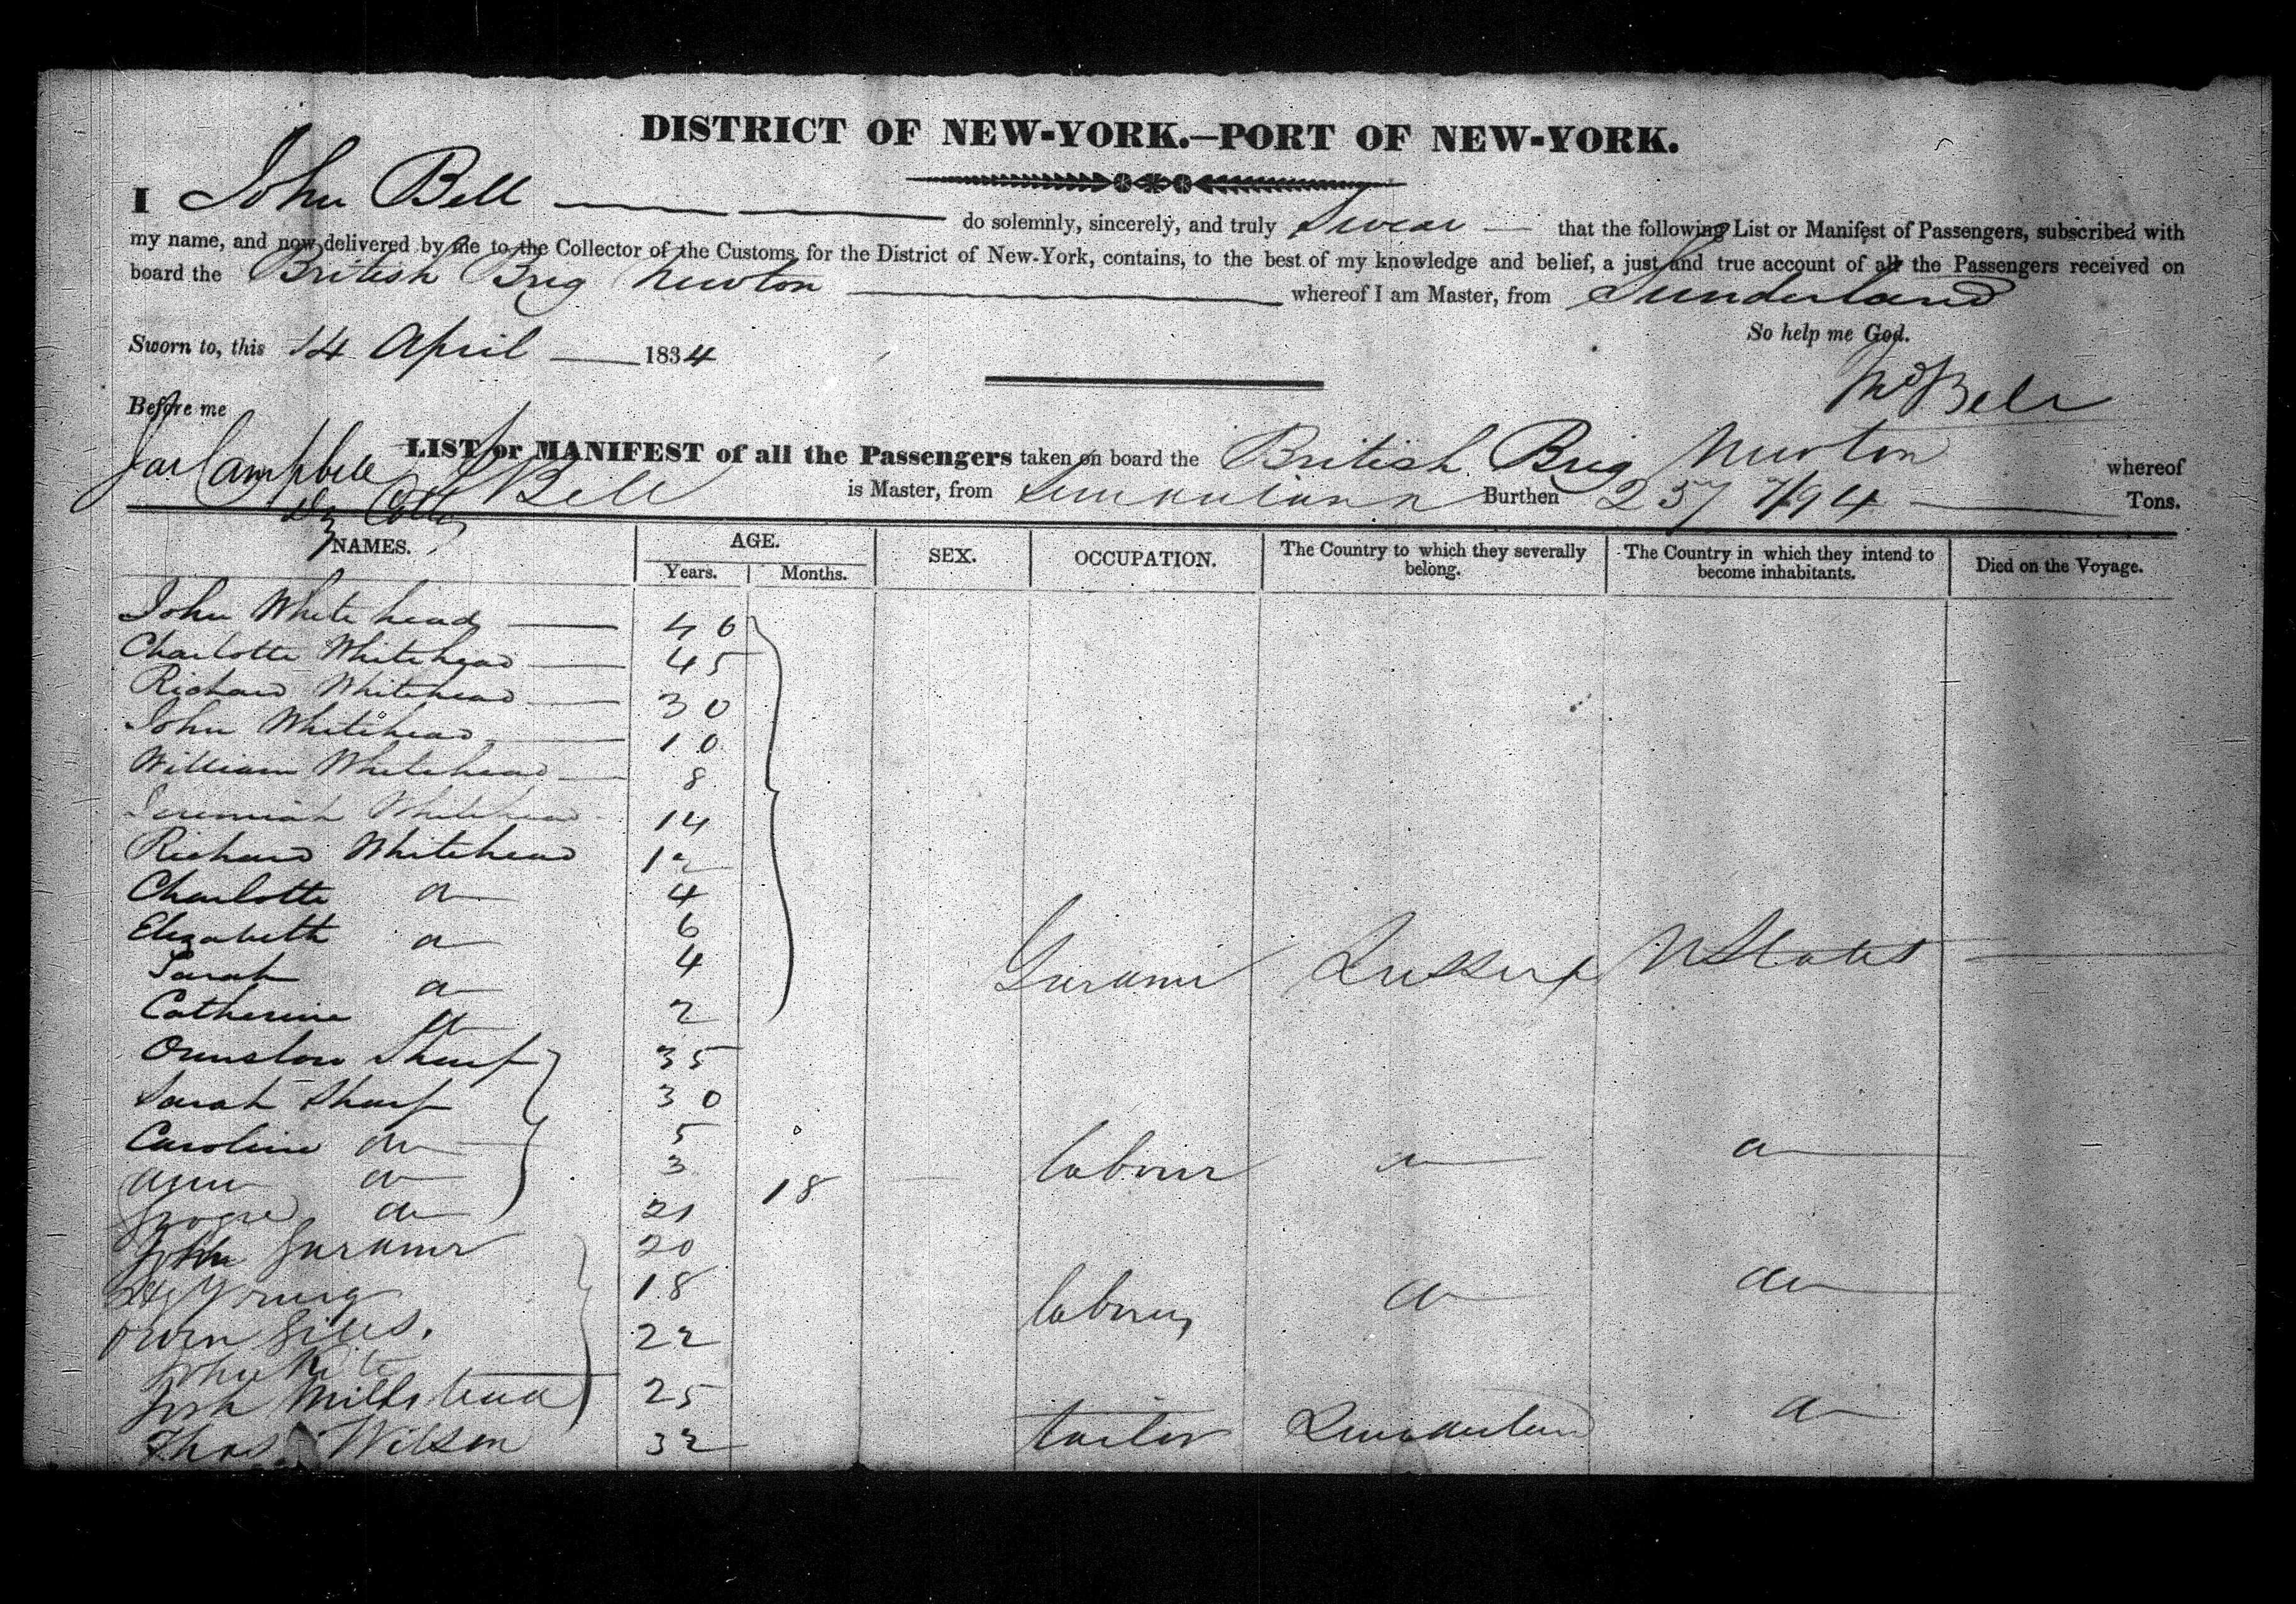 DISTRICT OF NEW-YORK.—PORT OF NEW-YORK.
I John Bell do solemnly, sincerely, and truly Swear that the following List or Manifest of Passengers, subscribed with
my name, and now delivered by me to the Collector of the Customs for the District of New-York, contains, to the best of my knowledge and belief, a just and true account of all the Passengers received on
board the British Brig Newton whereof I am Master, from Sunderland
So help me God.
Sworn to, this 14 April 1834
Bell
Before me
Jas Campbell
LIST or MANIFEST of all the Passengers taken on board the British Brig Newton whereof
J Bell is Master, from Sunderland Burthen 257 7/94 Tons.
NAMES. AGE. Years. Months. SEX. OCCUPATION. The Country to which they severally belong. The Country in which they intend to become inhabitants. Died on the Voyage.
John Whitehead 46
Charlotte Whitehead 45
Richard Whitehead 30
John Whitehead 10
William Whitehead 8
Jeremiah Whitehead 14
Richard Whitehead 12
Charlotte do 4
Elizabeth do 6
Sarah do 4 Gardner Sussex U States
Catherine do 2
Ormslow Sharp 35
Sarah Sharp 30
Caroline do 5 labourer do do
Ann do 3 18
George do 21
John Gardner 20
Young 18 labourer do do
Owen Giles. 22
John
Josh Millstead 25
Thos Wilson 32 tailor Sunderland do